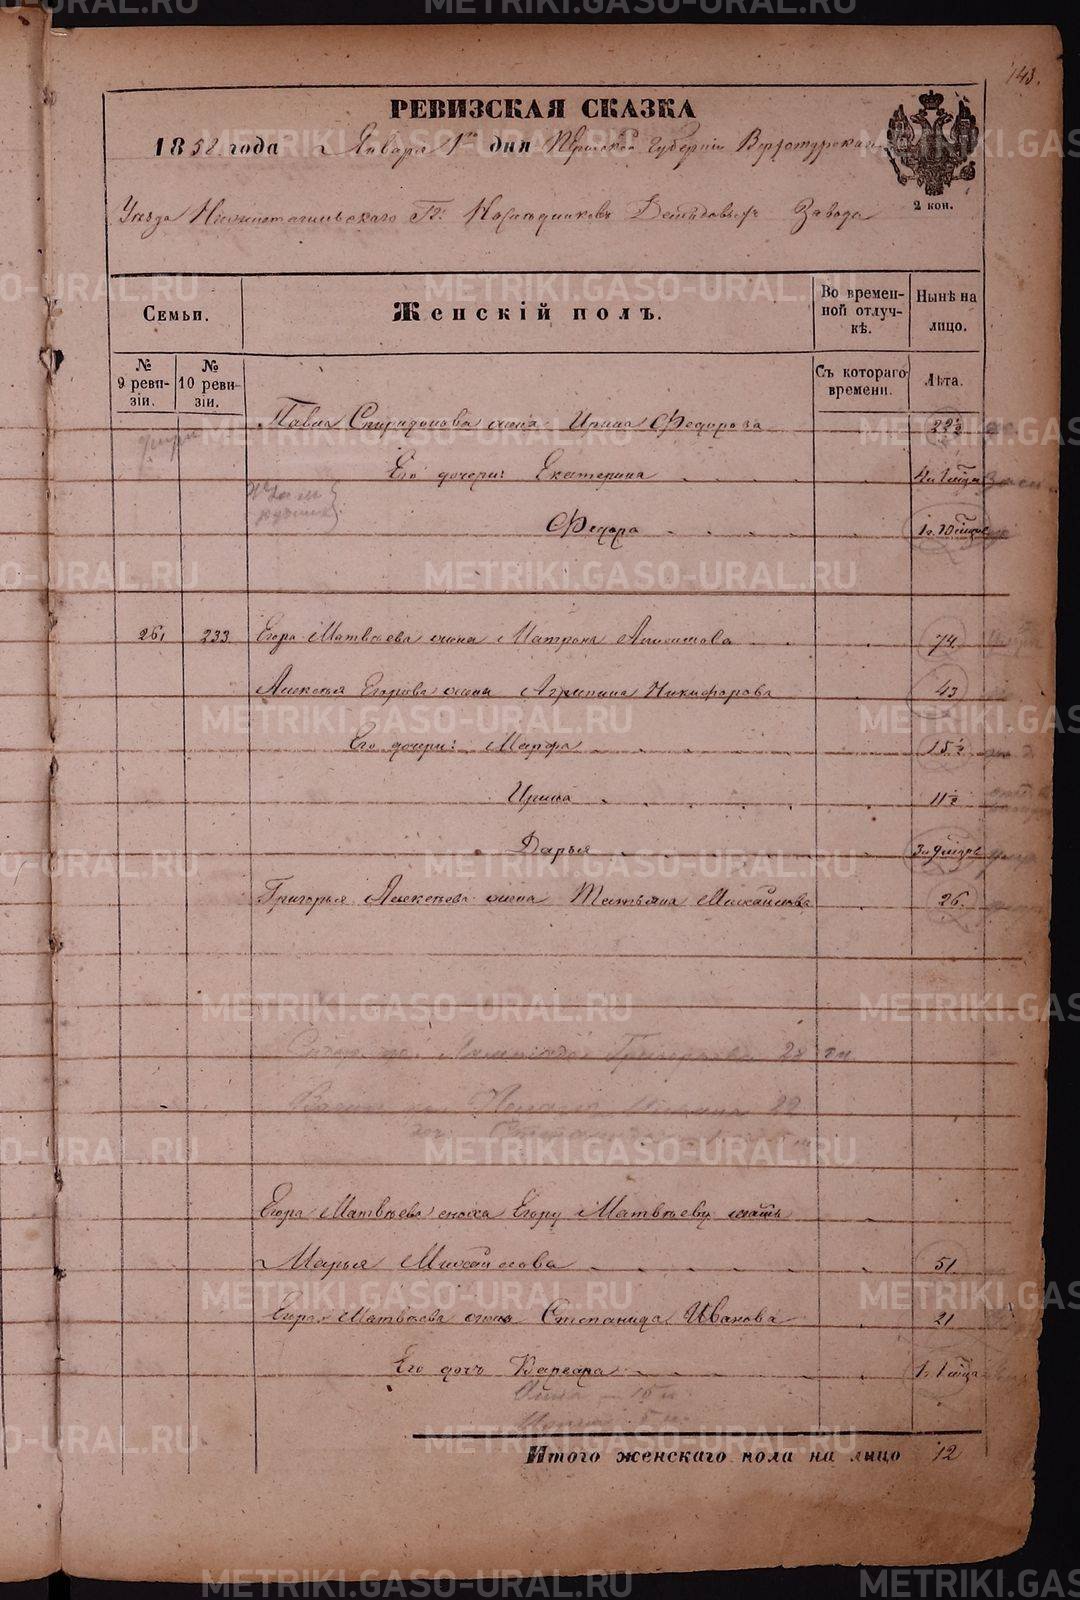 143.
РЕВИЗСКАЯ СКАЗКА
1858 года Января 1го дня Пермской Губерніи Верхотурскаго
2 кон.
Уѣзда Нижнетагильскаго Гг. Наслѣдниковъ Демидовыхъ Завода
Семьи. Женскій полъ. Во временной отлучкѣ. Нынѣ на лицо.
№ 9 ревизіи. № 10 ревизіи. Съ котораго времени. Лѣта.
Павла Спиридонова жена Ирина Федорова 22½
Его дочери: Екатерина
Федора
26. 233. Егора Матвѣева жена Матрона 74.
Алексѣя Егорова жена Агрипина Никифорова 43
Его дочери: Марфа 15½
Ирина 11½
Дарья
Григорья Алексѣева жена Татьяна Михайлова 26.
Григорьева
Егора Матвѣева сноха Егору Матвѣеву мать
Марья Михайлова 51.
Егора Матвѣева жена Степанида Иванова 21
Его дочь Варвара
Итого женскаго пола на лицо 12
METRIKI.GASO-URAL.RU